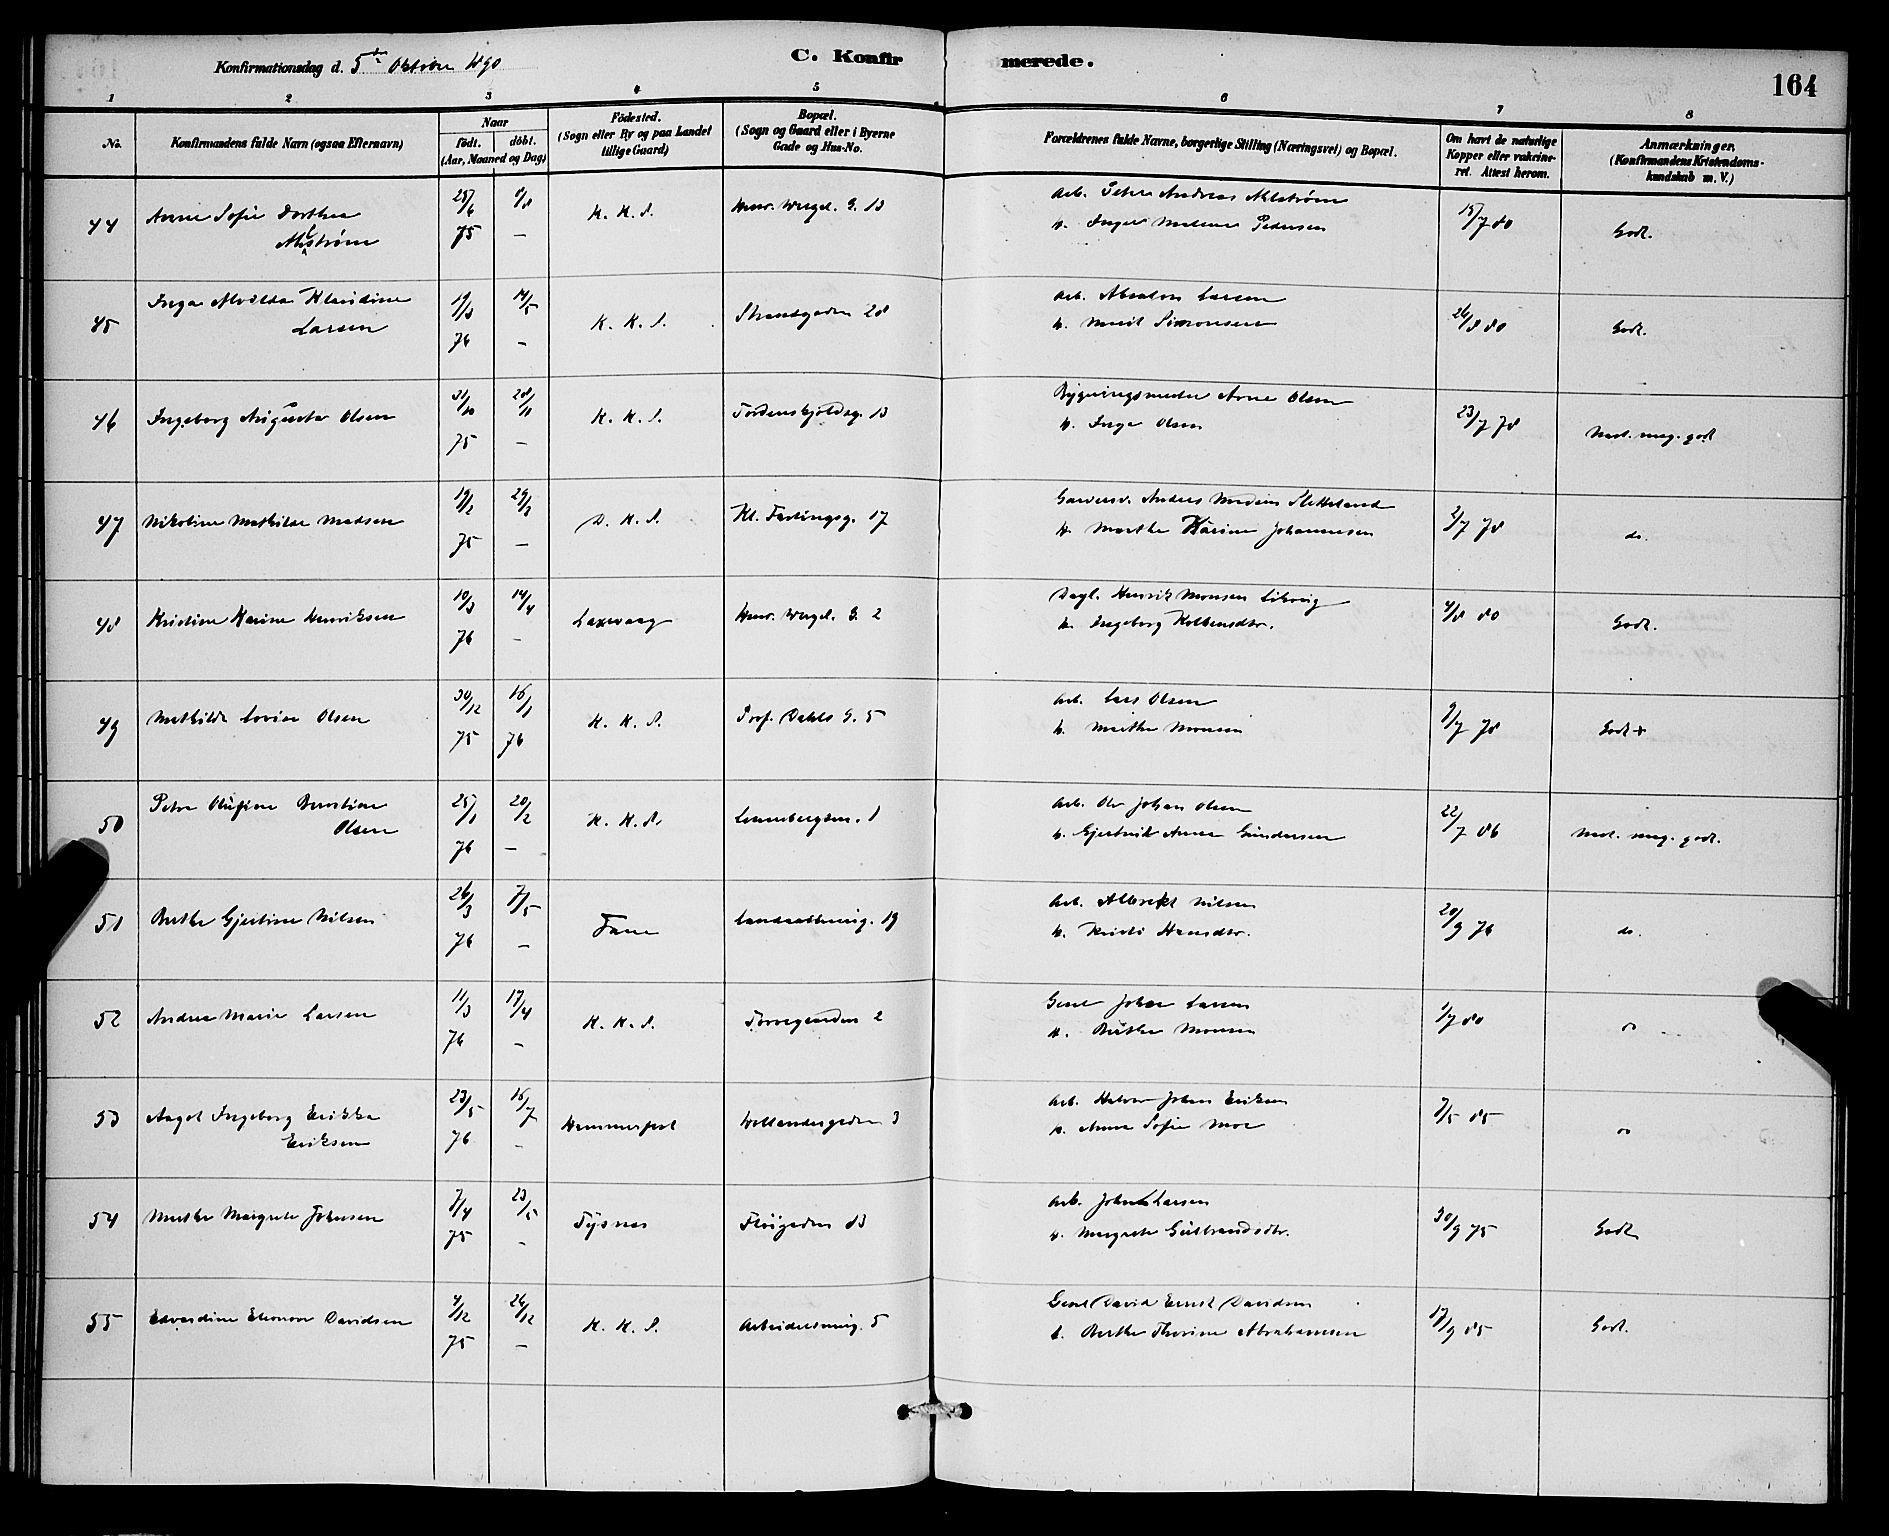 Konfirmationsdag d. 5te Oktober 1890
C. Konfirmerede.
164
1 2 3 4 5 6 7 8
No.
Konfirmandens fulde Navn (ogsaa Efternavn)
Naar
födt. döbt.
(Aar, Maaned og Dag)
Födested.
(Sogn eller By og paa Landet
tillige Gaard)
Bopæl.
(Sogn og Gaard eller i Byerne
Gade og Hus-No.
Forældrenes fulde Navne, borgerlige Stilling (Næringsvei) og Bopæl.
Om havt de naturlige
Kopper eller vakcine-
ret. Attest herom.
Anmærkninger.
(Konfirmandens Kristendoms-
kundskab m. V.)
44 Anna Sofie Dorthea Ahlstrøm
K. K. S. Henr. Wergel. G. 13
Arb. Peter Andreas Ahlstrøm
h. Inger Malene Pedersen
15/7 80 Godt.
45 Inga Alvilda Klaudine Larsen
19/3 76 14/5 –
K. K. S. Strandgaden 28
Arb. Absalon Larsen
h. Marit Simonsen
26/8 80 Godt.
46 Ingeborg Augusta Olsen
31/10 75 28/11 –
K. K. S. Tordenskjoldsg. 13
Bygningsmester Arne Olsen
h. Inga Olsen
23/7 78 Mod. meg. godt
47 Nikoline Mathilde Madsen
19/2 75 29/3 –
D. K. S. Kl. Fastingsg. 17
Garversv. Anders Madsen Sletteland
h. Marthe Karine Johannesen
2/7 78 do.
48 Kristine Karine Henriksen
10/3 76 14/4 –
Laxevaag Henr. Wergel. G. 2
Dagl. Henrik Monsen
h. Ingeborg
4/8 80 Godt.
49 Mathilde Lovise Olsen
30/12 75 16/1 76
K. K. S. Prof. Dahls G. 5
Arb. Lars Olsen
h. Marthe Monsen
9/7 78 Godt +
50 Petra Olufine Olsen
25/1 76 20/2 –
K. K. S.
Arb. Ole Johan Olsen
h. Gjertrud Anna Gundersen
22/7 86 Mod. meg. godt.
51 Berthe Gjertine Nilsen
26/3 76 7/5 –
Fane 19
Arb. Albrekt Nilsen
h. Kristi Hansdtr.
20/9 76 do.
52 Andrea Marie Larsen
11/3 76 17/4 –
K. K. S. Torvegaden 2
Johan Larsen
h. Berthe Monsen
1/7 80
53 Aagot Ingeborg Erikka Eriksen
23/5 76 16/7 –
Hammerfest Hollendergaden 3
Arb. Halvor Johan Eriksen
h. Anna Sofie Moe
7/5 85
54 Marthe Margrete Johnsen
7/4 75 23/5 –
Tysnes Fløigaden
Arb. John Larsen
h. Margrete Gulbrandsdtr.
30/9 75 Godt
55 Edvardine Eleonora Davidsen
4/12 75 26/12 –
K. K. S. 5
David Ernst Davidsen
h. Berthe Thorine Abrahamsen
17/9 85 Godt.